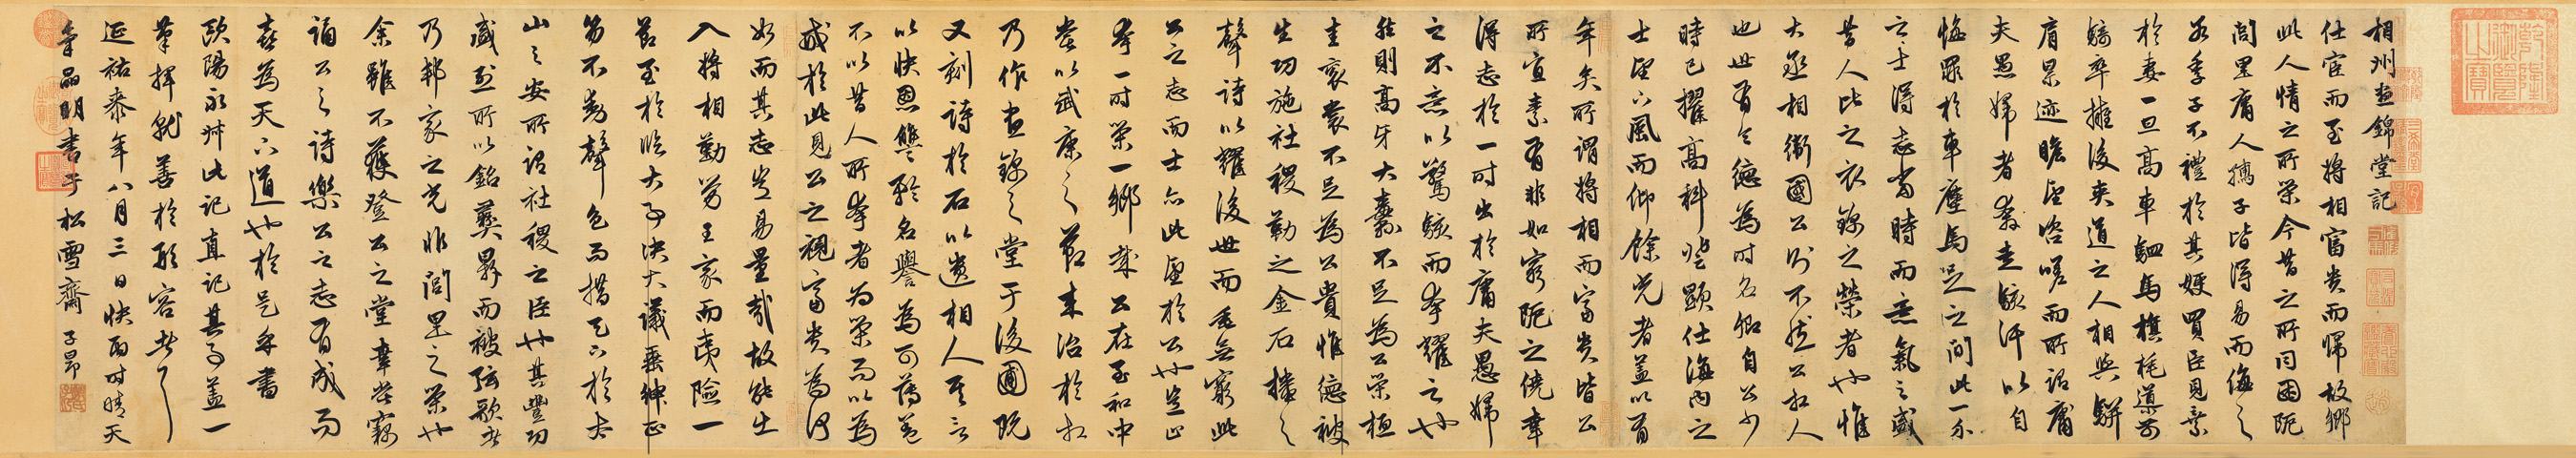 乾隆御覽之寶
相州晝錦堂記
仕宦而至將相富貴而歸故鄉
此人情之所榮今昔之所同困阨
閭里庸人孺子皆得易而侮之
若季子不禮於其嫂買臣見棄
於妻一旦高車駟馬旗旄導前
騎卒擁後夾道之人相與駢
肩累迹瞻望咨嗟而所謂庸
夫愚婦者奔走駭汗以自
悔罪於車塵馬足之間此一介
之士得志當時而意氣之盛
昔人比之衣錦之榮者也惟
大丞相衛國公則不然公相人
也世有令德為時名卿自公少
時已擢高科登顯仕海內之
士望下風而仰餘光者蓋以有
年矣所謂將相而富貴皆公
所宜素有非如窮阨之僥幸
得志於一時出於庸夫愚婦
之不意以驚駭而夸耀之也
然則高牙大纛不足為公榮桓
圭袞裳不足為公貴惟德被
生功施社稷勒之金石播之
聲詩以耀後世而垂無窮此
公之志而士亦此望於公也豈止
夸一時榮一鄉哉公在至和中
嘗以武康之節來治於相
乃作晝錦之堂于後圃既
又刻詩於石以遺相人其言
以快恩讎矜名譽為可薄蓋
不以昔人所夸者為榮而以為
戒於此見公之視富貴為何
如而其志豈易量哉故能出
入將相勤勞王家而夷險一
節至於臨大事決大議垂紳正
笏不動聲色而措天下於太
山之安所謂社稷之臣也其豐功
盛烈所以銘彝鼎而被弦歌者
乃邦家之光非閭里之榮也
余雖不獲登公之堂幸嘗竊
誦公之詩樂公之志有成而
喜為天下道也於是乎書
歐陽永叔此記直記其事蓋一
筆揮就善於形容者
延祐泰年八月三日快雨時晴天
氣晶明書于松雪齋 子昂